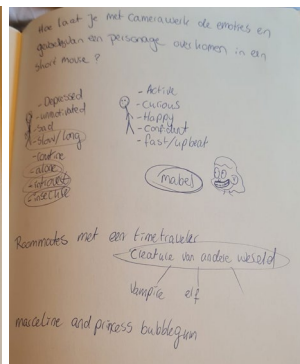 Hoe laat je met camerawerk de emoties en
van een personage overkomen in een
short movie?
- Depressed
- unmotivated
- sad
- slow/long
- routine
- alone
- introvert
- insecure
- Active
- curious
- Happy
- Confident
- fast/upbeat
mabel
Roommates met een timetraveler
Creature van andere wereld
Vampire elf
marceline and princess bubblegum